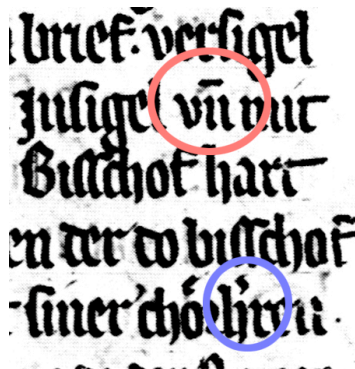 brief. versigel
Jnsigel vn̄ mit
Bisschof hart
en der do bisschof
siner chorh'ren.